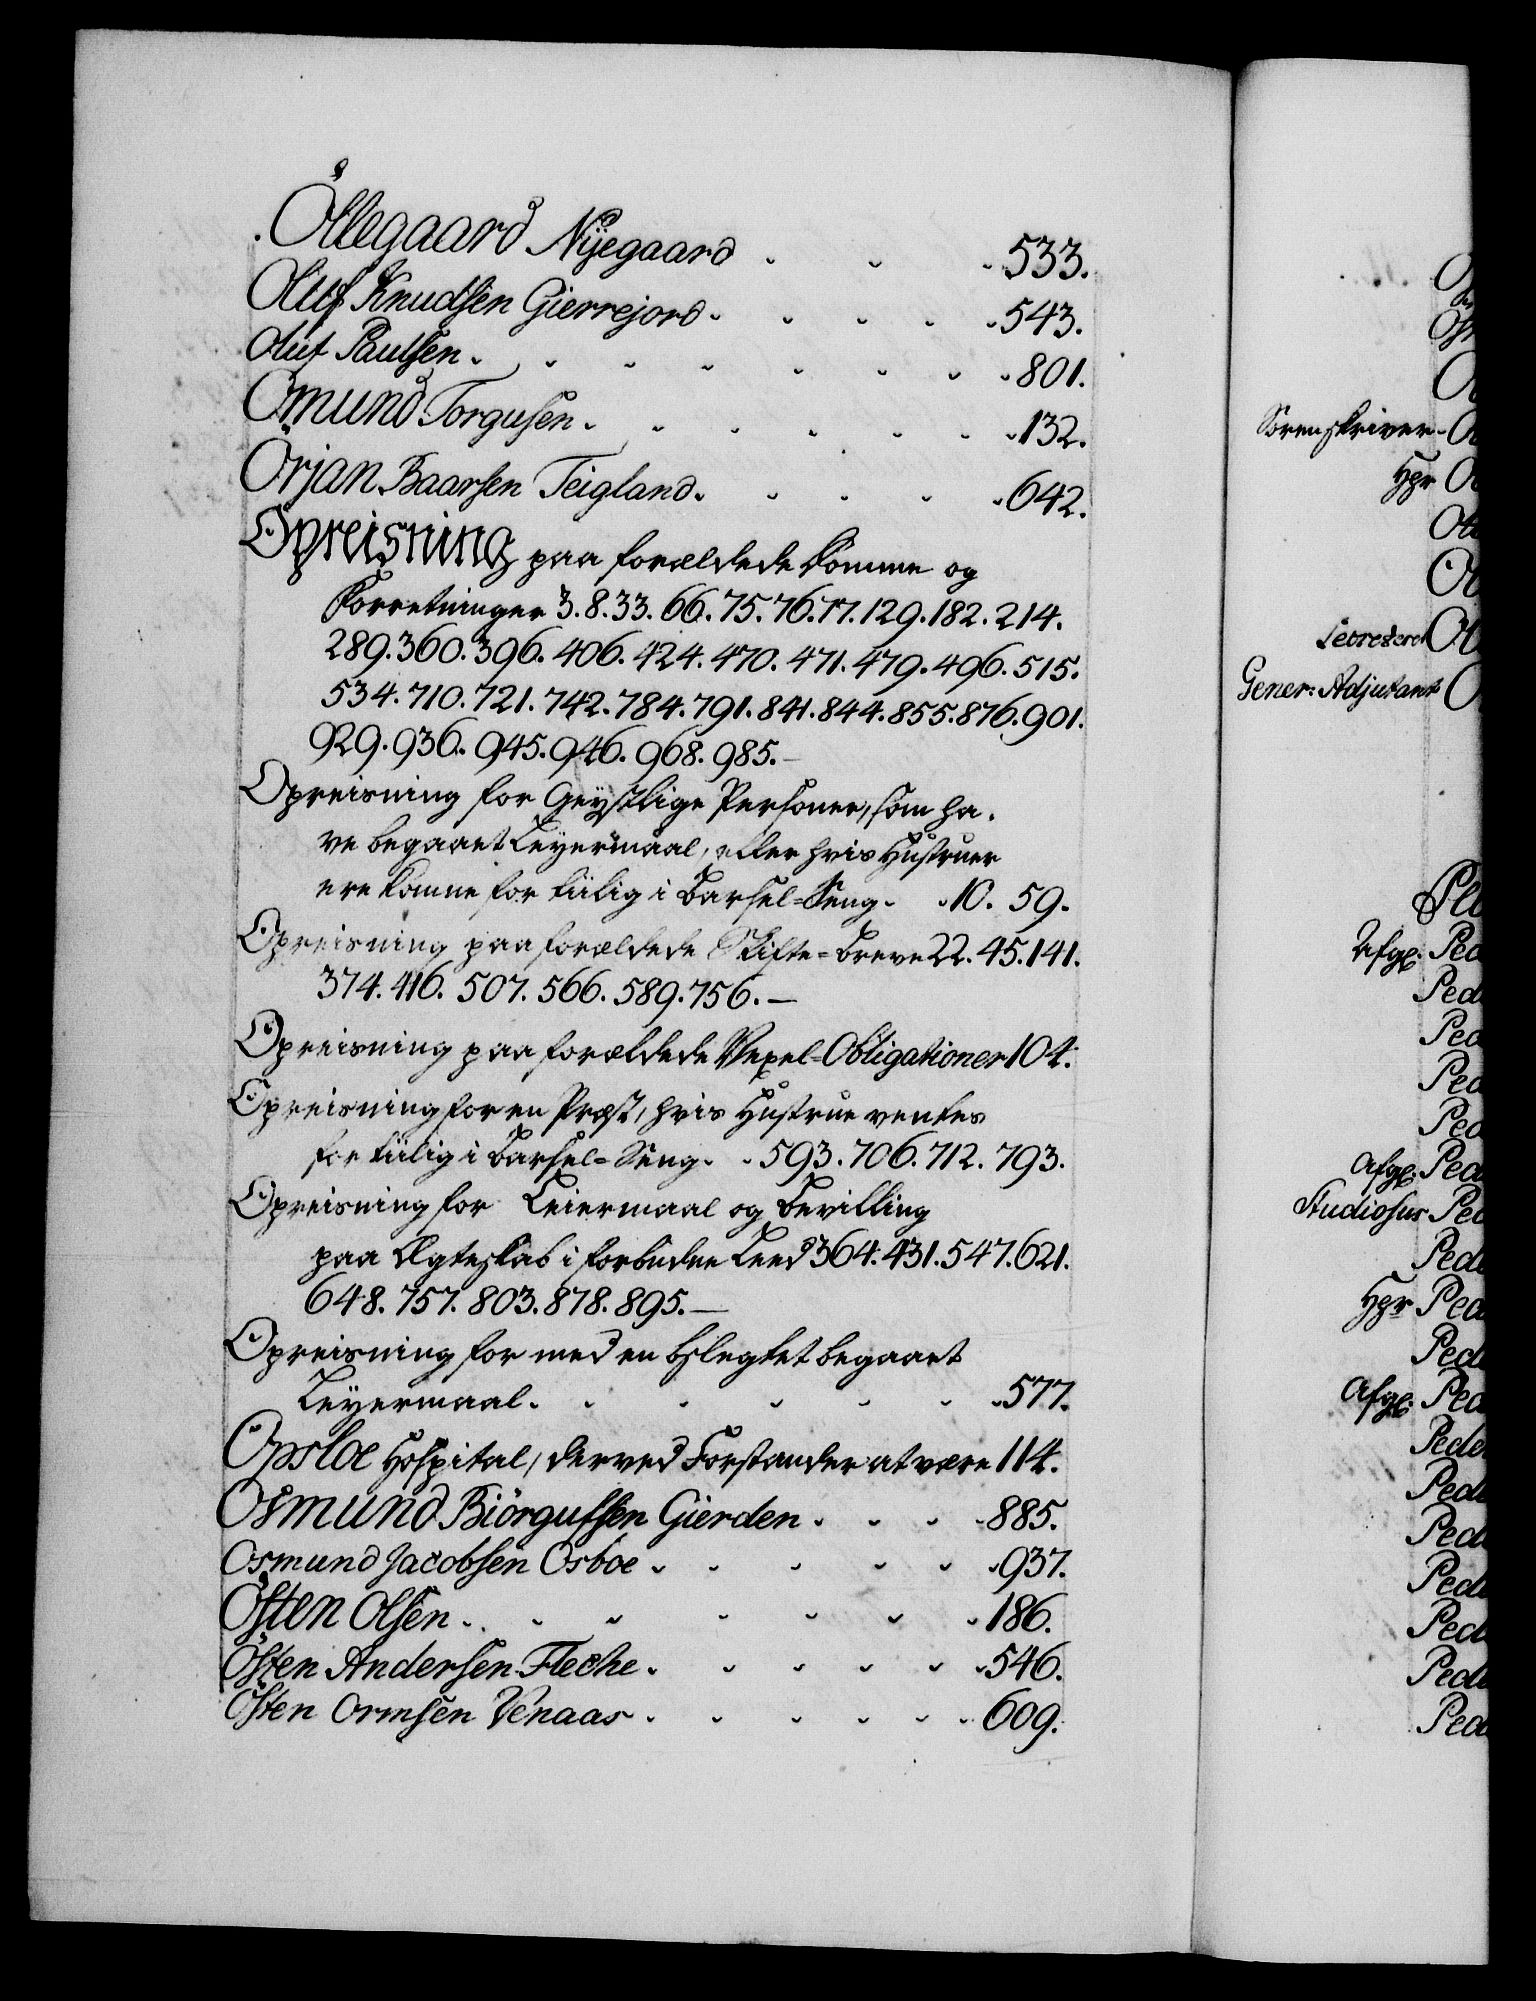 Öllegaard Nÿegaard 533.
Oluf Knudsen Gierrejord 543.
Oluf Paulsen 801.
Omund Torgusen 132.
Örjan Baarsen Teigland 642.
Opreisning paa forældede Domme og
Forretninger 3. 8. 33. 66. 75. 76. 77. 129. 182. 214.
289. 360. 396. 406. 424. 470. 471. 479. 496. 515.
534. 710. 721. 742. 784. 791. 841. 844. 855. 876. 901.
929. 936. 945. 946. 968. 985.
Opreisning for Geystlige Personer, som ha-
ve begaaet Leyermaal, eller hvis Hustruer
ere komne for tiilig i Barsel-Seng. 10. 59.
Opreisning paa forældede Skifte-breve 22. 45. 141.
374. 416. 507. 566. 589. 756.
Opreisning paa forældede Vexel-Obligationer 104.
Opreisning for en Præst, hvis Hustrue ventes
for tiilig i Barsel-Seng. 593. 706. 712. 793.
Opreisning for Leiermaal og Bevilling
paa Ægteskab i forbuden Leed 364. 431. 547. 621.
648. 757. 803. 878. 895.
Opreisning for med en beslegtet begaaet
Leÿermaal 577.
Opsloe Hospital, derved Forstander at være 114.
Osmund Biörgufsen Gierden 885.
Osmund Jacobsen Osboe 937.
Östen Olsen 186.
Östen Andersen Fleche 546.
Östen Ormsen Venaas 609.
Sorenskriver
Hpr
Secreterer
Gener: Adjutant
Afgl:
Ped
Ped
Ped
Ped
Ped
Afgl: Ped
Studiosus Ped
Ped
Hpr Ped
Ped
Afgl: Ped
Peder
Ped
Ped
Ped
Ped
Ped
Ped